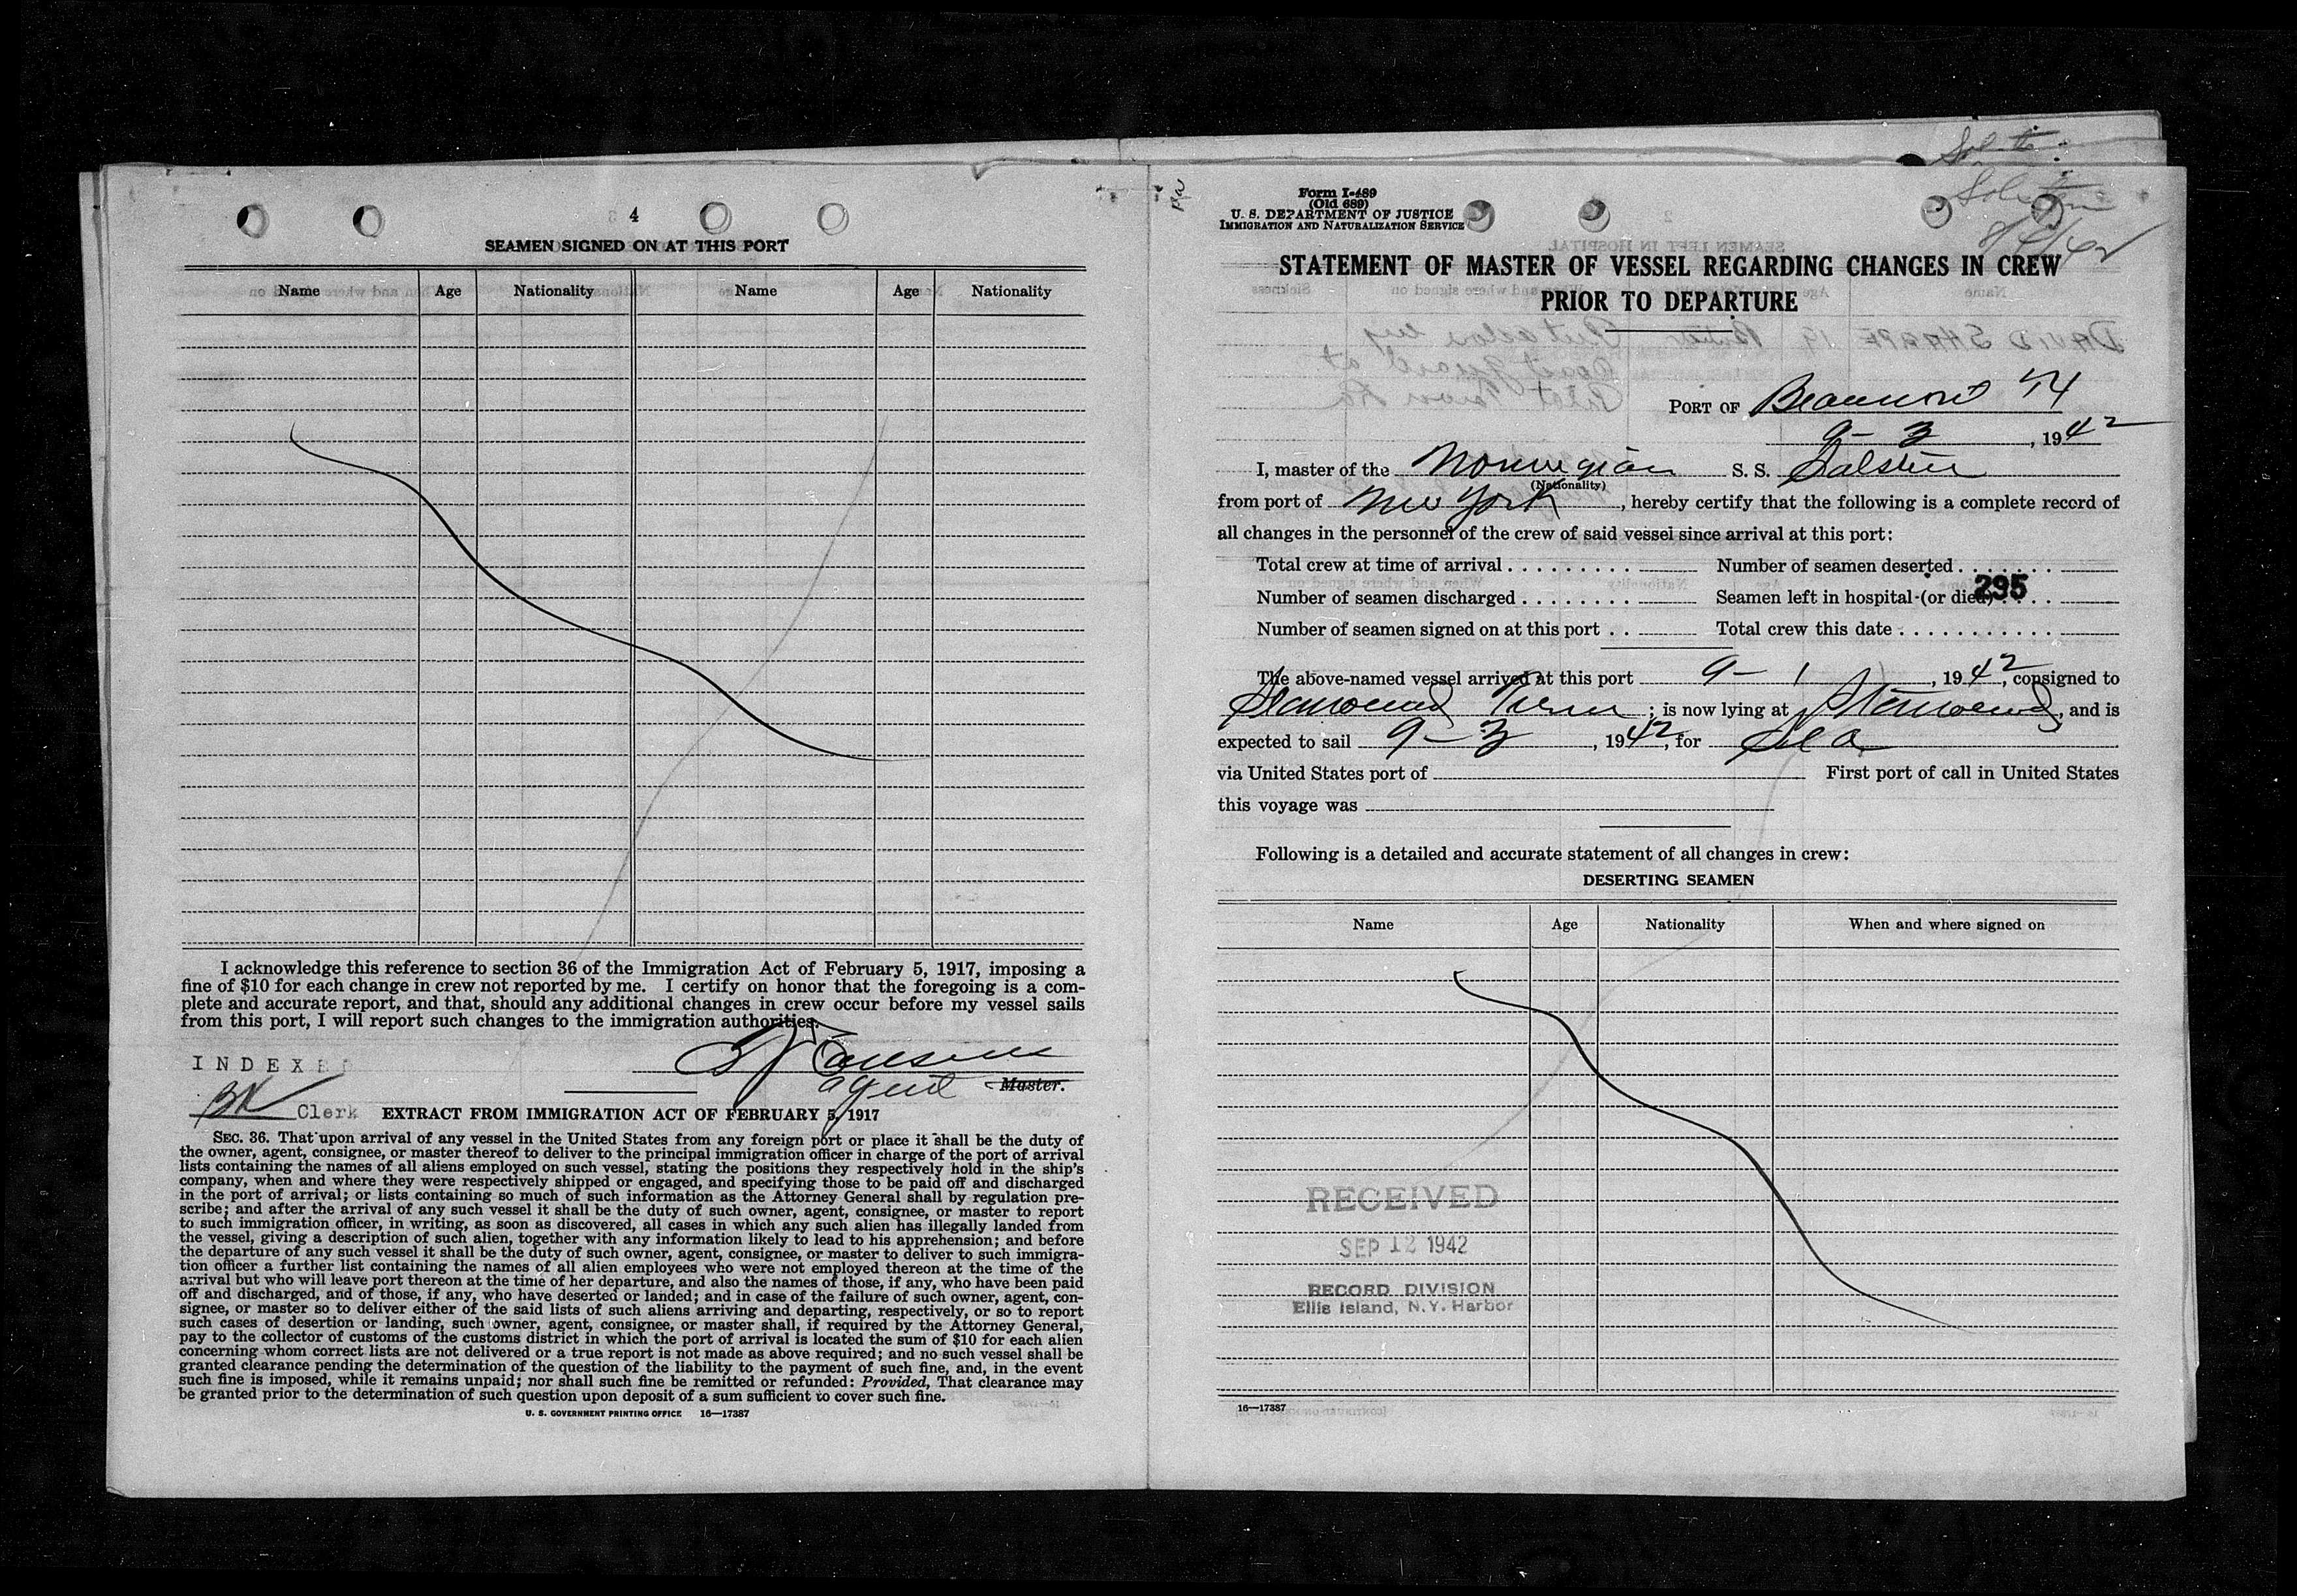 4
SEAMEN SIGNED ON AT THIS PORT
Name Age Nationality Name Age Nationality
I acknowledge this reference to section 36 of the Immigration Act of February 5, 1917, imposing a
fine of $10 for each change in crew not reported by me. I certify on honor that the foregoing is a com-
plete and accurate report, and that, should any additional changes in crew occur before my vessel sails
from this port, I will report such changes to the immigration authorities.
INDEXED
agent Master.
BK Clerk
EXTRACT FROM IMMIGRATION ACT OF FEBRUARY 5, 1917
SEC. 36. That upon arrival of any vessel in the United States from any foreign port or place it shall be the duty of
the owner, agent, consignee, or master thereof to deliver to the principal immigration officer in charge of the port of arrival
lists containing the names of all aliens employed on such vessel, stating the positions they respectively hold in the ship's
company, when and where they were respectively shipped or engaged, and specifying those to be paid off and discharged
in the port of arrival; or lists containing so much of such information as the Attorney General shall by regulation pre-
scribe; and after the arrival of any such vessel it shall be the duty of such owner, agent, consignee, or master to report
to such immigration officer, in writing, as soon as discovered, all cases in which any such alien has illegally landed from
the vessel, giving a description of such alien, together with any information likely to lead to his apprehension; and before
the departure of any such vessel it shall be the duty of such owner, agent, consignee, or master to deliver to such immigra-
tion officer a further list containing the names of all alien employees who were not employed thereon at the time of the
arrival but who will leave port thereon at the time of her departure, and also the names of those, if any, who have been paid
off and discharged, and of those, if any, who have deserted or landed; and in case of the failure of such owner, agent, con-
signee, or master so to deliver either of the said lists of such aliens arriving and departing, respectively, or so to report
such cases of desertion or landing, such owner, agent, consignee, or master shall, if required by the Attorney General,
pay to the collector of customs of the customs district in which the port of arrival is located the sum of $10 for each alien
concerning whom correct lists are not delivered or a true report is not made as above required; and no such vessel shall be
granted clearance pending the determination of the question of the liability to the payment of such fine, and, in the event
such fine is imposed, while it remains unpaid; nor shall such fine be remitted or refunded: Provided, That clearance may
be granted prior to the determination of such question upon deposit of a sum sufficient to cover such fine.
U. S. GOVERNMENT PRINTING OFFICE 16—17387
Form I-489
(Old 689)
U. S. DEPARTMENT OF JUSTICE
IMMIGRATION AND NATURALIZATION SERVICE
STATEMENT OF MASTER OF VESSEL REGARDING CHANGES IN CREW
PRIOR TO DEPARTURE
PORT OF Beaumont
9-3, 1942
I, master of the Norwegian S. S.
(Nationality)
from port of New York, hereby certify that the following is a complete record of
all changes in the personnel of the crew of said vessel since arrival at this port:
Total crew at time of arrival Number of seamen deserted
295
Number of seamen discharged Seamen left in hospital (or died)
Number of seamen signed on at this port Total crew this date
The above-named vessel arrived at this port 9-1, 1942, consigned to
; is now lying at , and is
expected to sail 9-3, 1942, for Sea
via United States port of First port of call in United States
this voyage was
Following is a detailed and accurate statement of all changes in crew:
DESERTING SEAMEN
Name Age Nationality When and where signed on
RECEIVED
SEP 12 1942
RECORD DIVISION
Ellis Island, N.Y. Harbor
16—17387